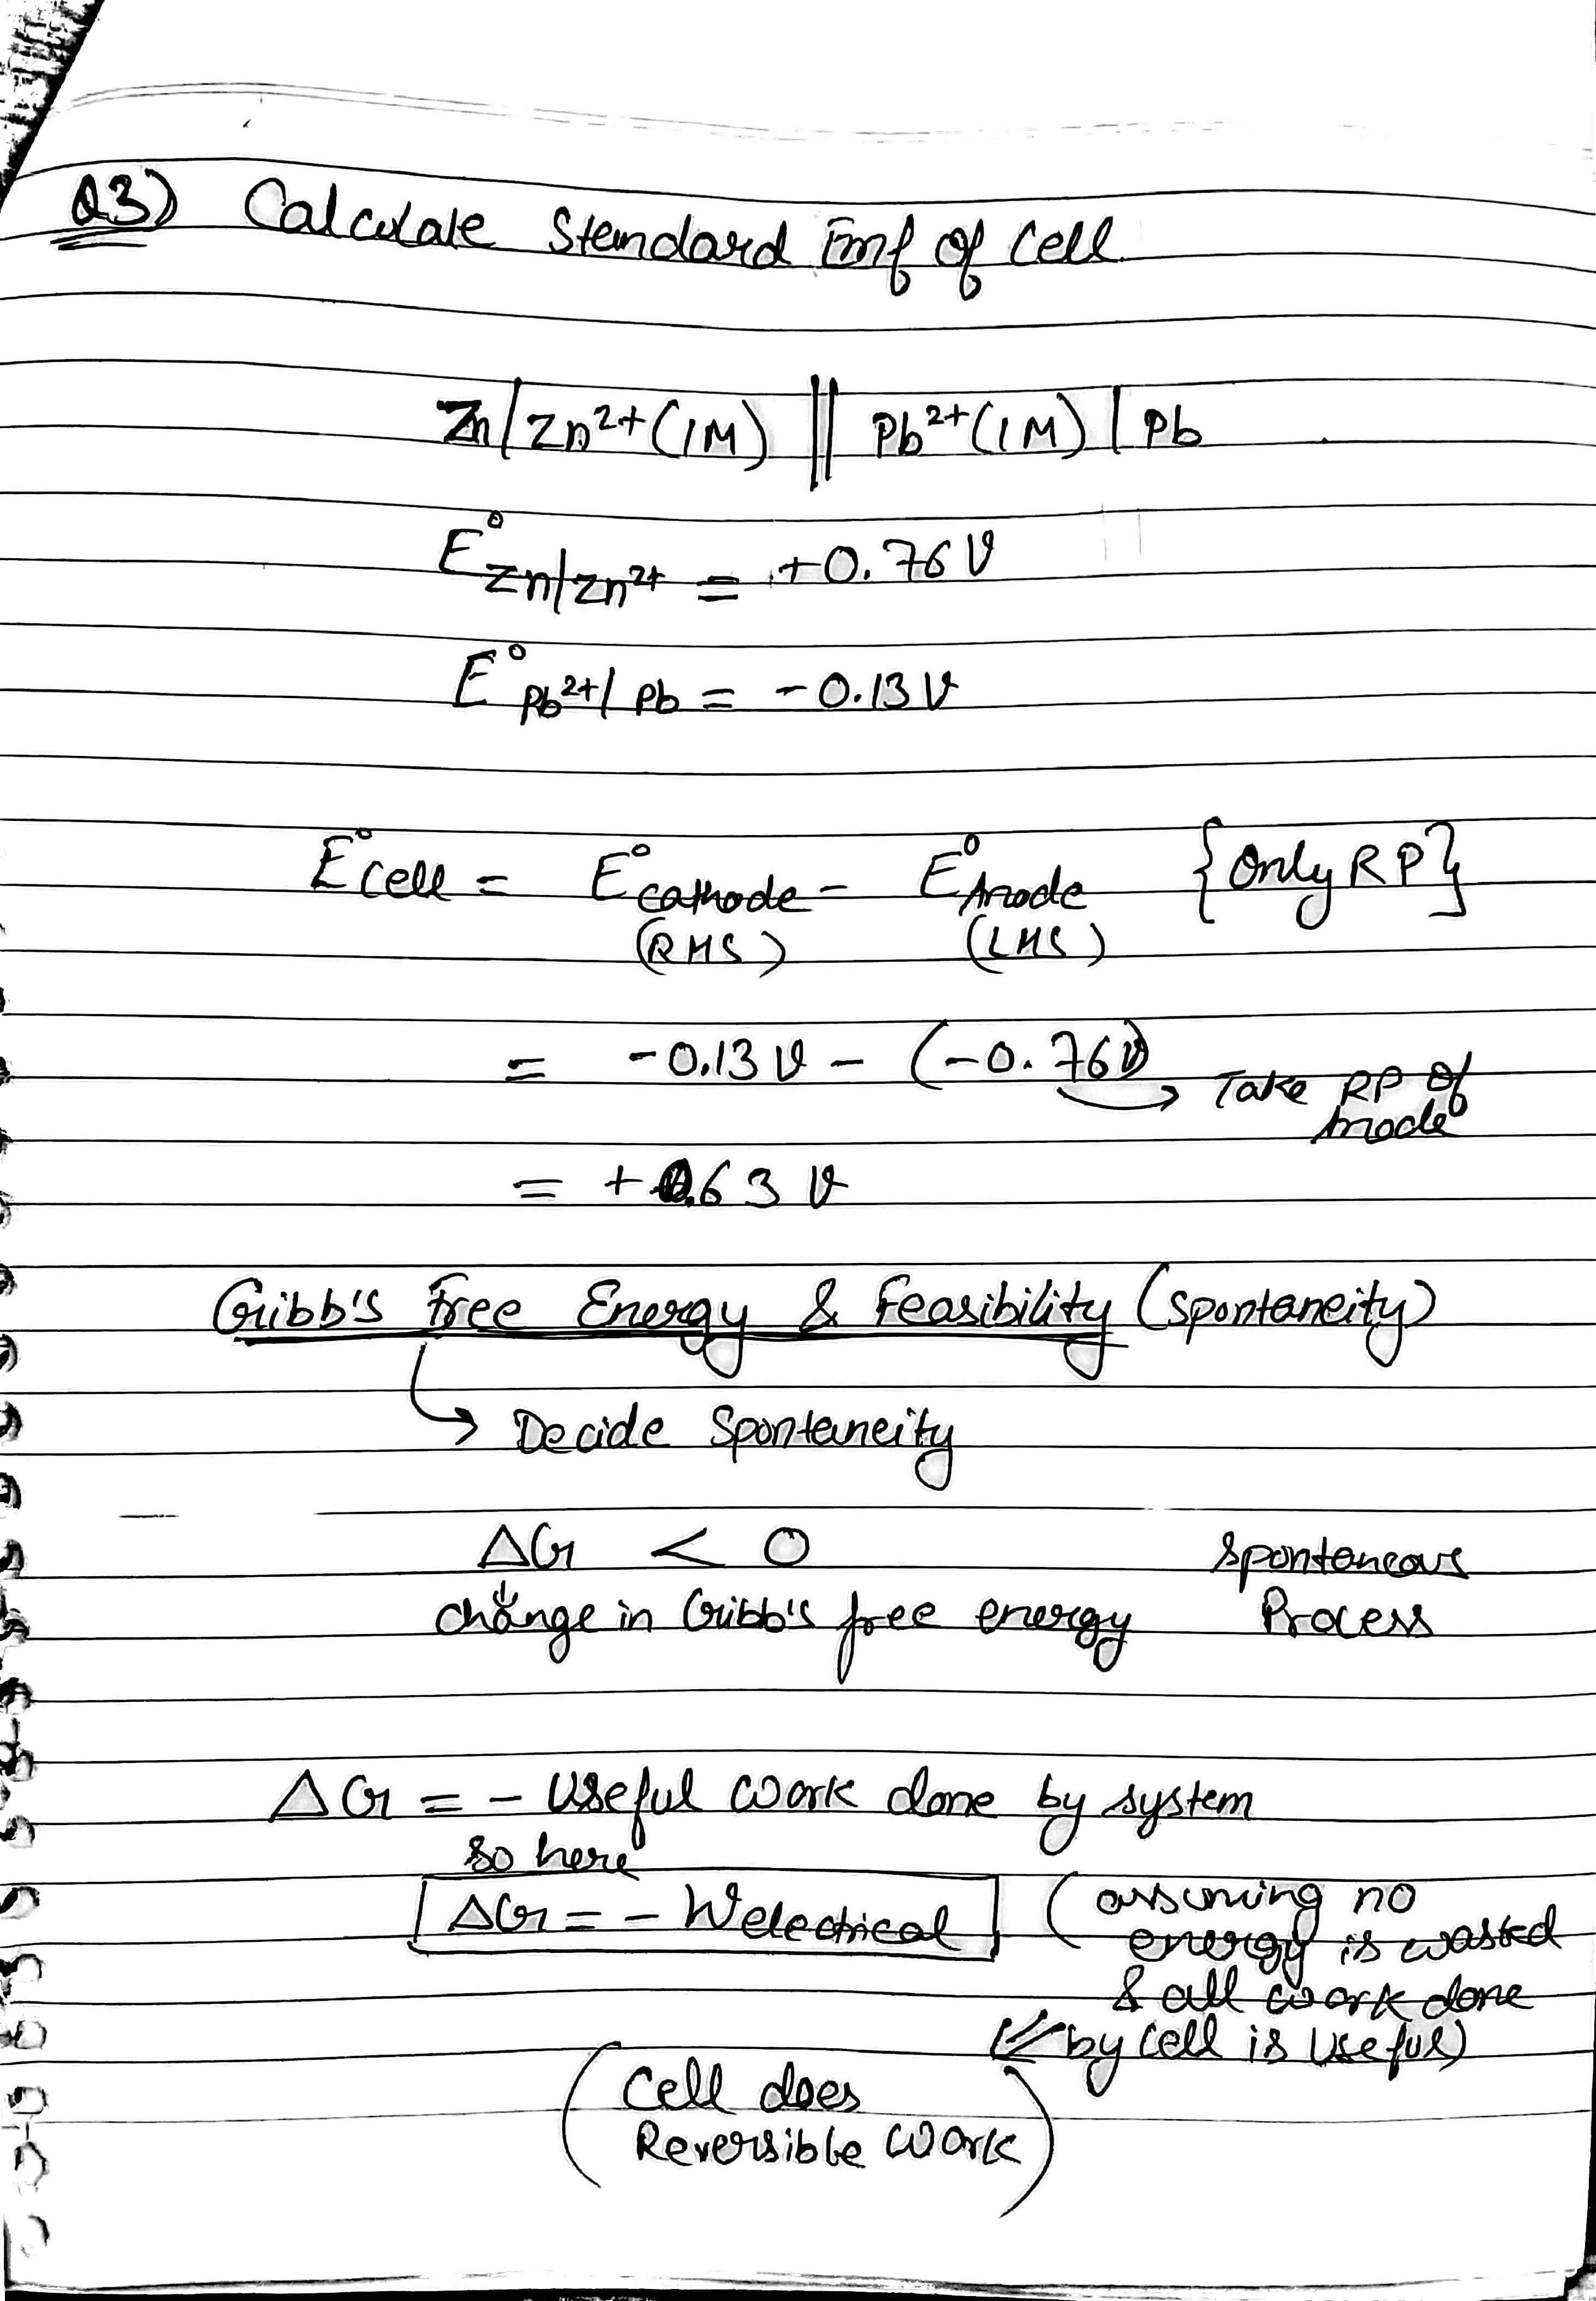 Q3) Calculate Standard Emf of Cell
Zn/Zn²⁺(1M) || Pb²⁺(1M) | Pb
E°Zn/Zn²⁺ = +0.76 V
E°Pb²⁺/Pb = -0.13 V
E°Cell = E°Cathode - E°Anode {Only RP}
(RHS) (LHS)
= -0.13 V - (-0.76 V)
→ Take RP of
Anode
= +0.63 V
Gribb's Free Energy & Feasibility (Spontaneity)
↳ Decide Spontaneity
ΔG < 0 Spontaneous
change in Gribb's free energy Process
ΔG = - Useful Work done by system
So here
ΔG = - Welectrical (assuming no
energy is wasted
& all work done
by cell is useful)
(Cell does
Reversible Work)